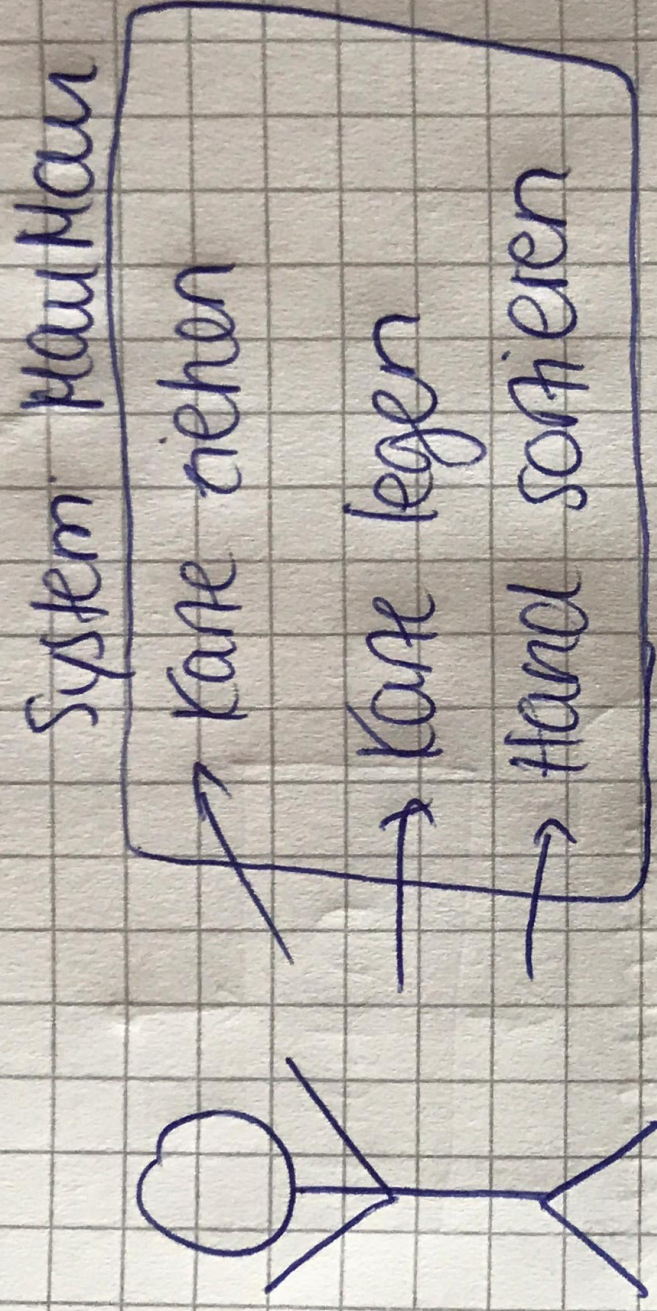 System: MauMau
Karte ziehen
Karte legen
Hand sortieren